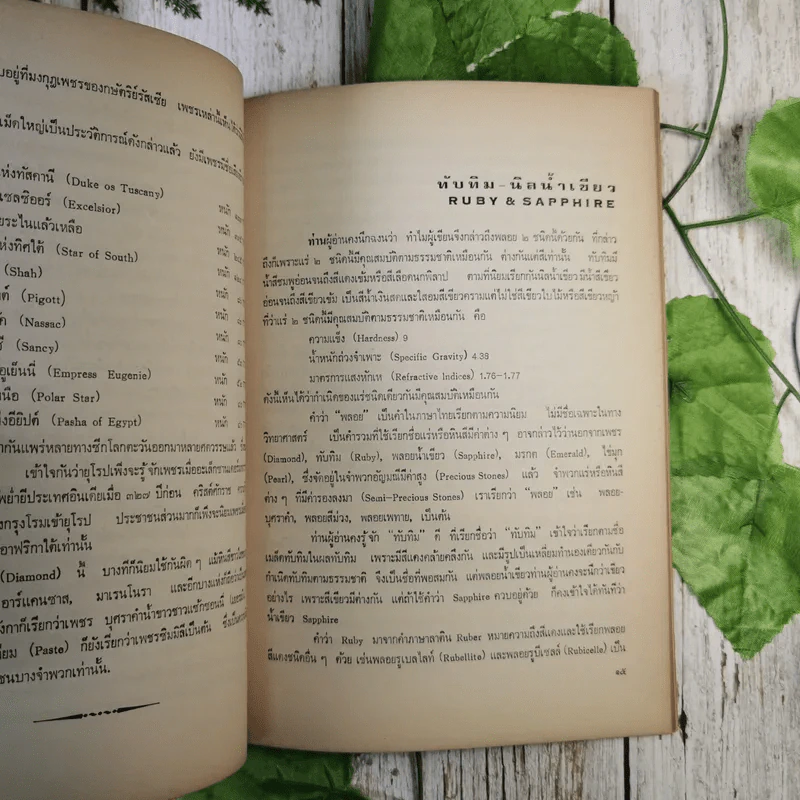 บอยู่ที่มงกุฎเพชรของกษัตริย์รัสเซีย เพชรเหล่านี้
เม็ดใหญ่เป็นประวัติการณ์ดังกล่าวแล้ว ยังมีเพชร
ห่งทัสคานี (Duke os Tuscany)
เซลซิออร์ (Excelsior) หนัก
ยระไนแล้วเหลือ หนัก
ห่งทิศใต้ (Star of South) หนัก
(Shah) หนัก
ต์ (Pigott) หนัก
ค (Nassac) หนัก
ซี (Sancy) หนัก
ยูเย็นนี่ (Empress Eugenie) หนัก
หนือ (Polar Star) หนัก
งอียิปต์ (Pasha of Egypt) หนัก
ากันแพร่หลายทางซีกโลกตะวันออกมาหลายศตวรรษแล้ว
เข้าใจกันว่ายุโรปเพิ่งจะรู้จักเพชรเมื่ออะเล็กซานเดอร
พย่ำยีประเทศอินเดียเมื่อ ๓๒๗ ปีก่อน คริสต์ศักราช
งกรุงโรมเข้ายุโรป ประชาชนส่วนมากก็เพิ่งจะนิยมเพชร
อาฟริกาใต้เท่านั้น
(Diamond) นี้ บางทีก็นิยมใช้กันผิด ๆ แม้หินสีขาว
อาร์แคนซาส, มาเรนโนรา และอีกบางแห่งก็
ังกาก็เรียกว่าเพชร บุศราคำน้ำขาวชาวแซ็กซอนนี่
ยม (Paste) ก็ยังเรียกว่าเพชรชิมมิสเป็นต้น ซึ่งเป็น
ชนบางจำพวกเท่านั้น.
ทับทิม – นิลน้ำเขียว
RUBY & SAPPHIRE
ท่านผู้อ่านคงนึกฉงนว่า ทำไมผู้เขียนจึงกล่าวถึงพลอย ๒ ชนิดนี้ด้วยกัน ที่กล่าว
ถึงก็เพราะแร่ ๒ ชนิดนี้มีคุณสมบัติตามธรรมชาติเหมือนกัน ต่างกันแต่สีเท่านั้น ทับทิมมี
น้ำสีชมพูอ่อนจนถึงสีแดงเข้มหรือสีเลือดนกพิลาป ตามที่นิยมเรียกกันนิลน้ำเขียวมีน้ำสีเขียว
อ่อนจนถึงสีเขียวเข้ม เป็นสีน้ำเงินสดและไสอมสีเขียวความแต่ไม่ใช่สีเขียวใบไม้หรือสีเขียวหญ้า
ที่ว่าแร่ ๒ ชนิดนี้มีคุณสมบัติตามธรรมชาติเหมือนกัน คือ
ความแข็ง (Hardness) 9
น้ำหนักถ่วงจำเพาะ (Specific Gravity) 4.38
มาตรการแสงหักเห (Refractive Indices) 1.76–1.77
ดังนี้เห็นได้ว่ากำเนิดของแร่ชนิดเดียวกันมีคุณสมบัติเหมือนกัน
คำว่า “พลอย” เป็นคำในภาษาไทยเรียกตามความนิยม ไม่มีชื่อเฉพาะในทาง
วิทยาศาสตร์ เป็นคำรวมที่ใช้เรียกชื่อแร่หรือหินสีมีค่าต่าง ๆ อาจกล่าวไว้ว่านอกจากเพชร
(Diamond), ทับทิม (Ruby), พลอยน้ำเขียว (Sapphire), มรกต (Emerald), ไข่มุก
(Pearl), ซึ่งจัดอยู่ในจำพวกอัญมณีมีค่าสูง (Precious Stones) แล้ว จำพวกแร่หรือหินสี
ต่าง ๆ ที่มีค่ารองลงมา (Semi-Precious Stones) เราเรียกว่า “พลอย” เช่น พลอย-
บุศราคำ, พลอยสีม่วง, พลอยเพทาย, เป็นต้น
ท่านผู้อ่านคงรู้จัก “ทับทิม” ดี ที่เรียกชื่อว่า “ทับทิม” เข้าใจว่าเรียกตามชื่อ
เมล็ดทับทิมในผลทับทิม เพราะมีสีแดงคล้ายคลึงกัน และมีรูปเป็นเหลี่ยมทำนองเดียวกันกับ
กำเนิดทับทิมตามธรรมชาติ จึงเป็นชื่อที่พอสมกัน แต่พลอยน้ำเขียวท่านผู้อ่านคงจะนึกว่าเขียว
อย่างไร เพราะสีเขียวมีต่างกัน แต่ถ้าใช้คำว่า Sapphire ควบอยู่ด้วย ก็คงเข้าใจได้ทันทีว่า
น้ำเขียว Sapphire
คำว่า Ruby มาจากคำภาษาลาติน Ruber หมายความถึงสีแดงและใช้เรียกพลอย
สีแดงชนิดอื่น ๆ ด้วย เช่นพลอยรูเบลไลท์ (Rubellite) และพลอยรูบีเซลล์ (Rubicelle) เป็น
๑๕